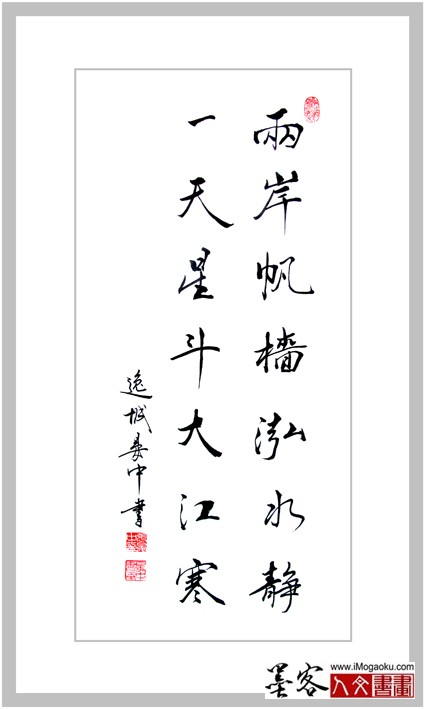 兩岸帆檣泓水静
一天星斗大江寒
逸城晏中書
墨客
www.iMogaoku.com
人文書畫